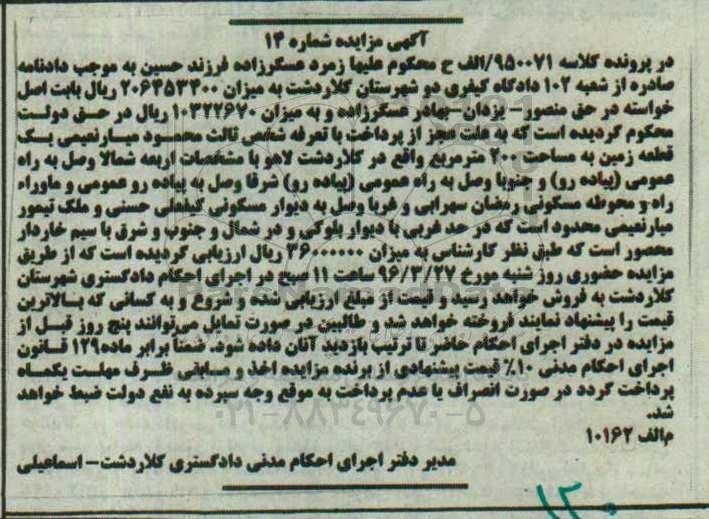 آگهی مزایده شماره ۱۴
در پرونده کلاسه ۹۵۰۰۷۱/الف ح محکوم علیها زمرد عسگرزاده فرزند حسین به موجب دادنامه
صادره از شعبه ۱۰۲ دادگاه کیفری دو شهرستان کلاردشت به میزان ۲۰۶۴۵۳۴۰۰ ریال بابت اصل
خواسته در حق منصور– یزدان–بهادر عسگرزاده و به میزان ۱۰۳۲۲۶۷۰ ریال در حـق دولـت
محکوم گردیده است که به علت عجز از پرداخت با تعرفه شخص ثالث محمـود میـارنعیمی یـک
قطعه زمین به مساحت ۲۰۰ مترمربع واقع در کلاردشت لاهو با مشخصات اربعه شمالا وصل به راه
عمومی (پیاده رو) و جنوبا وصل به راه عمومی (پیاده رو) شرقا وصل به پیاده رو عمومی و ماوراء
راه و محوطه مسکونی رمضان سهرابی و غربا وصل به دیوار مسکونی کیقعلی حسنی و ملک تیمور
میارنعیمی محدود است که در حد غربی با دیوار بلوکی و در شمال و جنوب و شرق با سیم خاردار
محصور است که طبق نظر کارشناس به میزان ۳۶۰۰۰۰۰۰۰ ریال ارزیابی گردیده است که از طریق
مزایده حضوری روز شنبه مورخ ۹۶/۳/۲۷ ساعت ۱۱ صبح در اجرای احکام دادگستری شهرستان
کلاردشت به فروش خواهد رسید و قیمت از مبلغ ارزیابی شده و شروع و به کسانی که بـالاترین
قیمت را پیشنهاد نمایند فروخته خواهد شد و طالبین در صورت تمایل می‌توانند پنج روز قبـل از
مزایده در دفتر اجرای احکام حاضر تا ترتیب بازدید آنان داده شود. ضمناً برابر ماده۱۲۹ قـانون
اجرای احکام مدنی ۱۰٪ قیمت پیشنهادی از برنده مزایده اخذ و مـابقی ظـرف مهلـت یکمـاه
پرداخت گردد در صورت انصراف یا عدم پرداخت به موقع وجه سپرده به نفع دولت ضبط خواهد
شد.
۰۲۱-۸۸۳۴۹۶۷۰-۵
م‌الف ۱۰۱۶۲
مدیر دفتر اجرای احکام مدنی دادگستری کلاردشت– اسماعیلی
۱۲۰